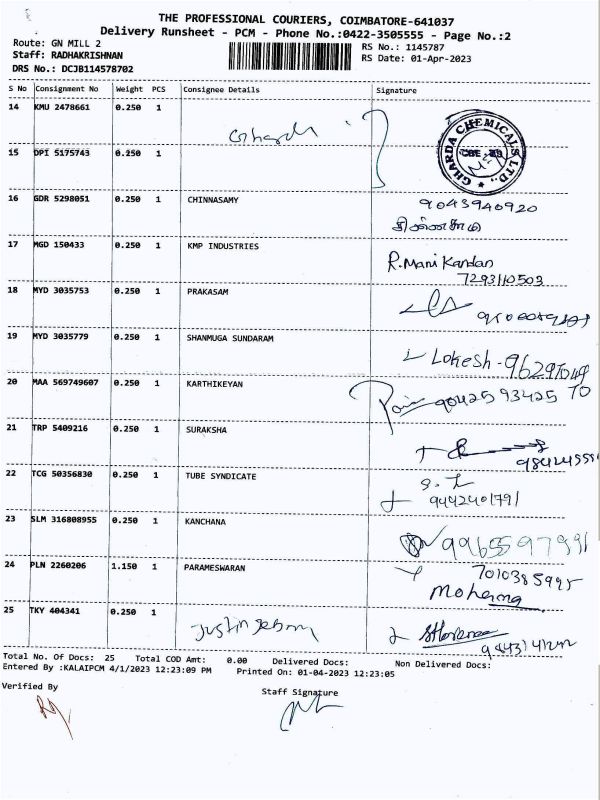 THE PROFESSIONAL COURIERS, COIMBATORE-641037
Delivery Runsheet - PCM - Phone No.:0422-3505555 - Page No.:2
Route: GN MILL 2
RS No.: 1145787
Staff: RADHAKRISHNAN
RS Date: 01-Apr-2023
DRS No.: DCJB114578702
S No Consignment No Weight PCS Consignee Details Signature
14 KMU 2478661 0.250 1
GHARDA CHEMICALS LTD.,
15 DPI 5175743 0.250 1
16 GDR 5298051 0.250 1 CHINNASAMY 9043940920
சின்னசாமி
17 MGD 150433 0.250 1 KMP INDUSTRIES R.Mani Kandan
7293110503
18 MYD 3035753 0.250 1 PRAKASAM
19 MYD 3035779 0.250 1 SHANMUGA SUNDARAM
Lokesh -
20 MAA 569749607 0.250 1 KARTHIKEYAN
9042593425
21 TRP 5409216 0.250 1 SURAKSHA
22 TCG 50356830 0.250 1 TUBE SYNDICATE
9442401791
23 SLM 316808955 0.250 1 KANCHANA
9965597991
24 PLN 2260206 1.150 1 PARAMESWARAN
7010385995
25 TKY 404341 0.250 1
Total No. Of Docs: 25 Total COD Amt: 0.00 Delivered Docs: Non Delivered Docs:
Entered By :KALAIPCM 4/1/2023 12:23:09 PM Printed On: 01-04-2023 12:23:05
Verified By
Staff Signature